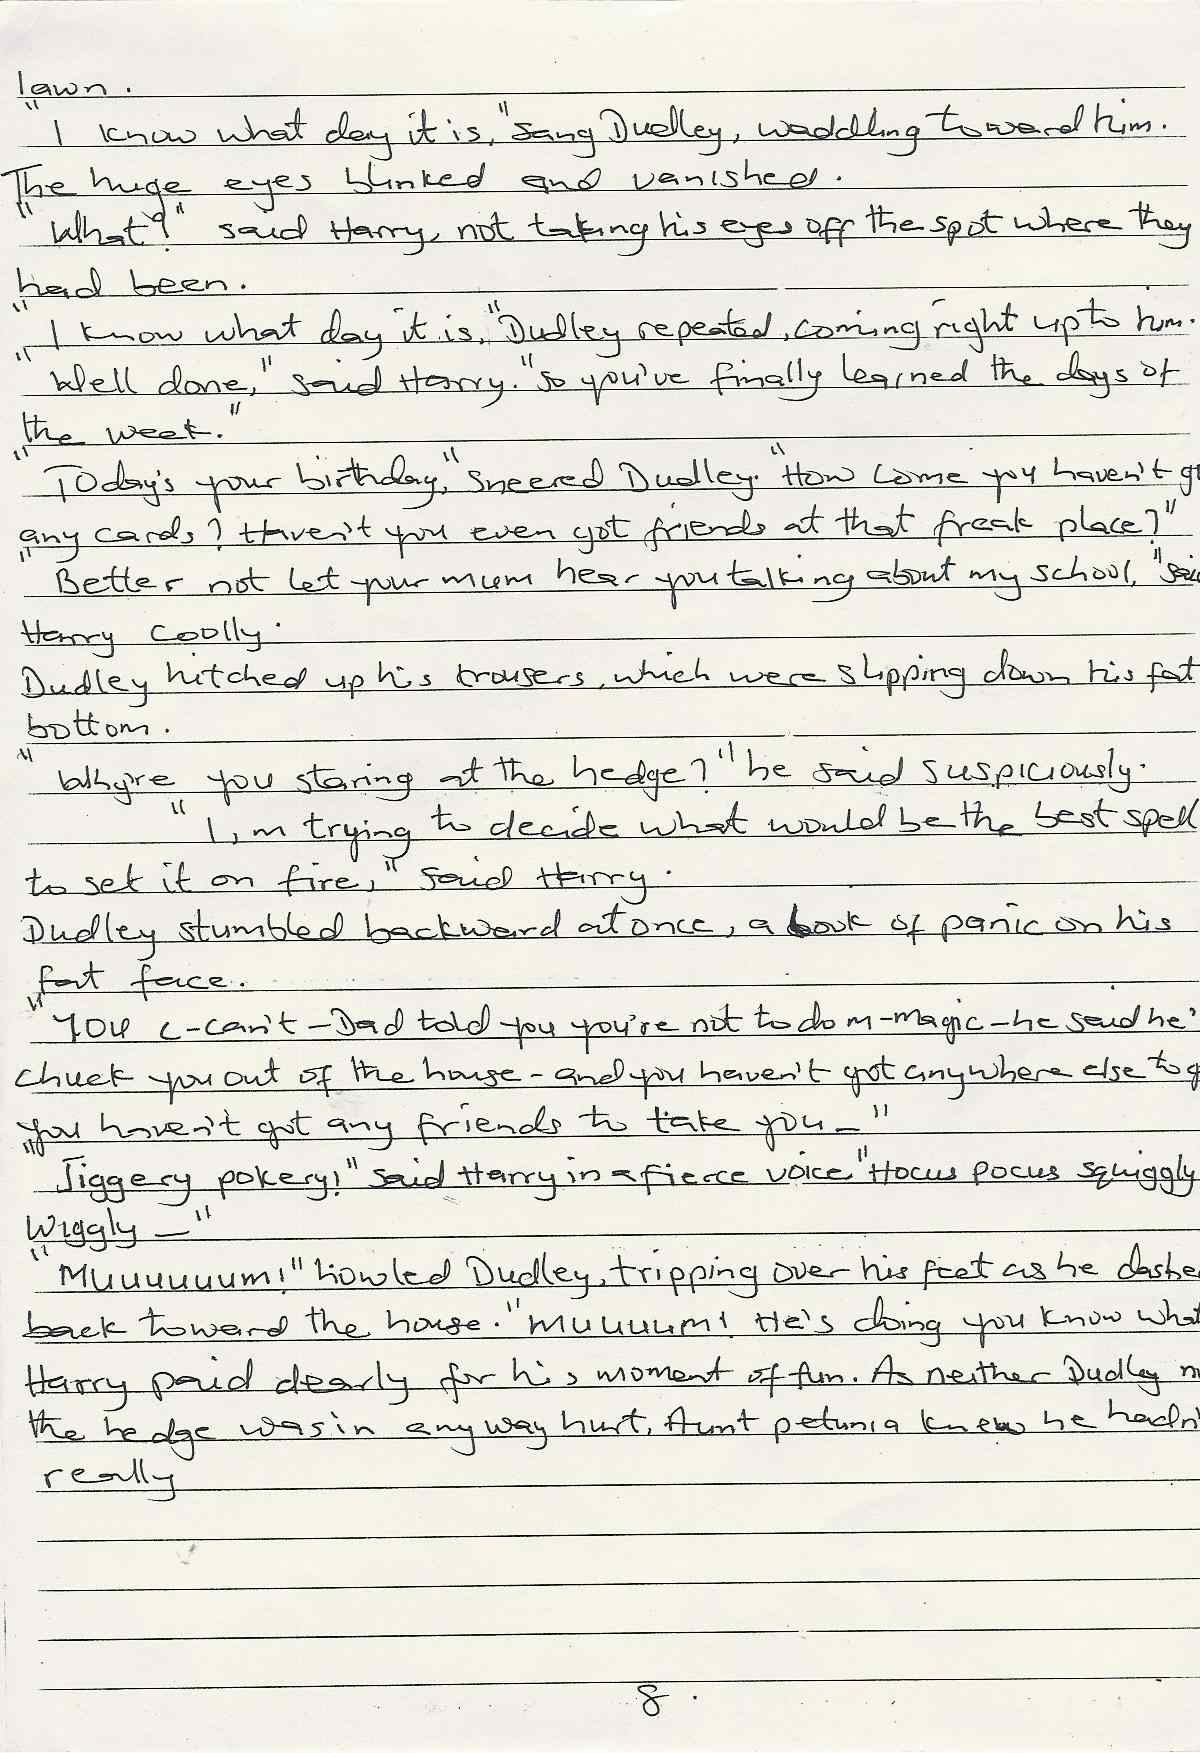 lawn.
"I know what day it is," sang Dudley, waddling toward him.
The huge eyes blinked and vanished.
"What?" said Harry, not taking his eyes off the spot where they
had been.
"I know what day it is," Dudley repeated, coming right up to him.
"Well done," said Harry. "so you've finally learned the days of
the week."
"Today's your birthday," sneered Dudley. "How come you haven't g
any cards? Haven't you even got friends at that freak place?"
"Better not let your mum hear you talking about my school," sai
Harry coolly.
Dudley hitched up his trousers, which were slipping down his fat
bottom.
"Why're you staring at the hedge?" he said suspiciously.
"I,m trying to decide what would be the best spell
to set it on fire," said Harry.
Dudley stumbled backward at once, a look of panic on his
fat face.
"You c-can't - Dad told you you're not to do m-magic - he said he'
chuck you out of the house - and you haven't got anywhere else to g
you haven't got any friends to take you -"
"Jiggery pokery!" said Harry in a fierce voice "Hocus pocus squiggly
wiggly -"
"Muuuuuum!" howled Dudley, tripping over his feet as he dashe
back toward the house. "muuuum! He's doing you know what
Harry paid dearly for his moment of fun. As neither Dudley n
the hedge was in any way hurt, Aunt petunia knew he hadn'
really
8.